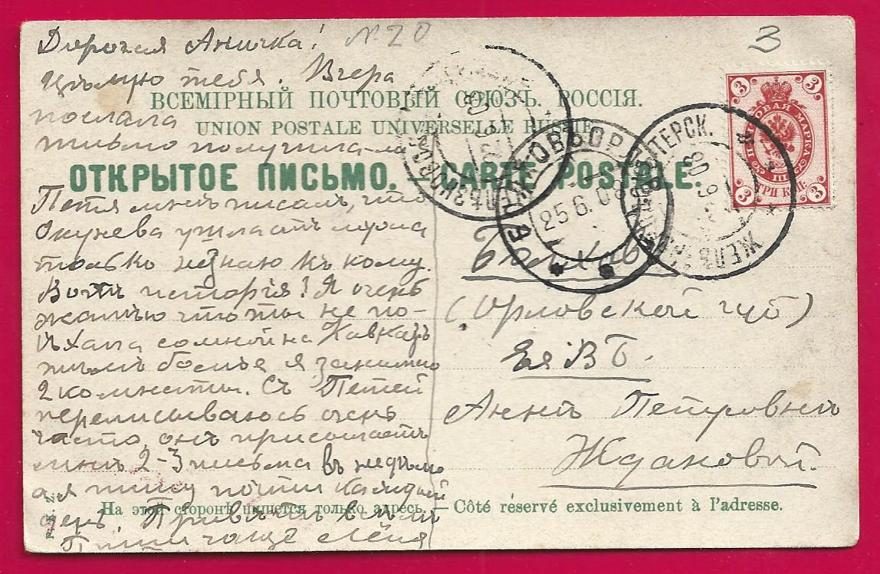 Дорогая Аничка! №20
3
Цѣлую тебя. Вчера
ВСЕМІРНЫЙ ПОЧТОВЫЙ СОЮЗЪ. РОССІЯ.
послала
UNION POSTALE UNIVERSELLE RUSSIE
письмо получила
ОТКРЫТОЕ ПИСЬМО. — CARTE POSTALE.
Петя мнѣ писалъ, что
Окунева
только не знаю къ кому.
Вотъ исторія! Я очень
жалѣю что ты не по-
ѣхала со мной на Кавказъ
тѣмъ болѣе я занимаю
2 комнаты. Съ Петей
переписываюсь очень
часто, онъ присылаетъ
мнѣ 2-3 письма въ недѣлю
а я пишу почти каждый
день. Привѣтъ всѣмъ
Пиши чаще Лёня
3 3
ПОЧТОВАЯ МАРКА
ТРИ КОП.
3 3
25.6.08
Болховъ
(Орловской губ)
Ея ВБ.
Аннѣ Петровнѣ
Ждановой.
На этой сторонѣ пишется только адресъ. — Côté réservé exclusivement à l'adresse.